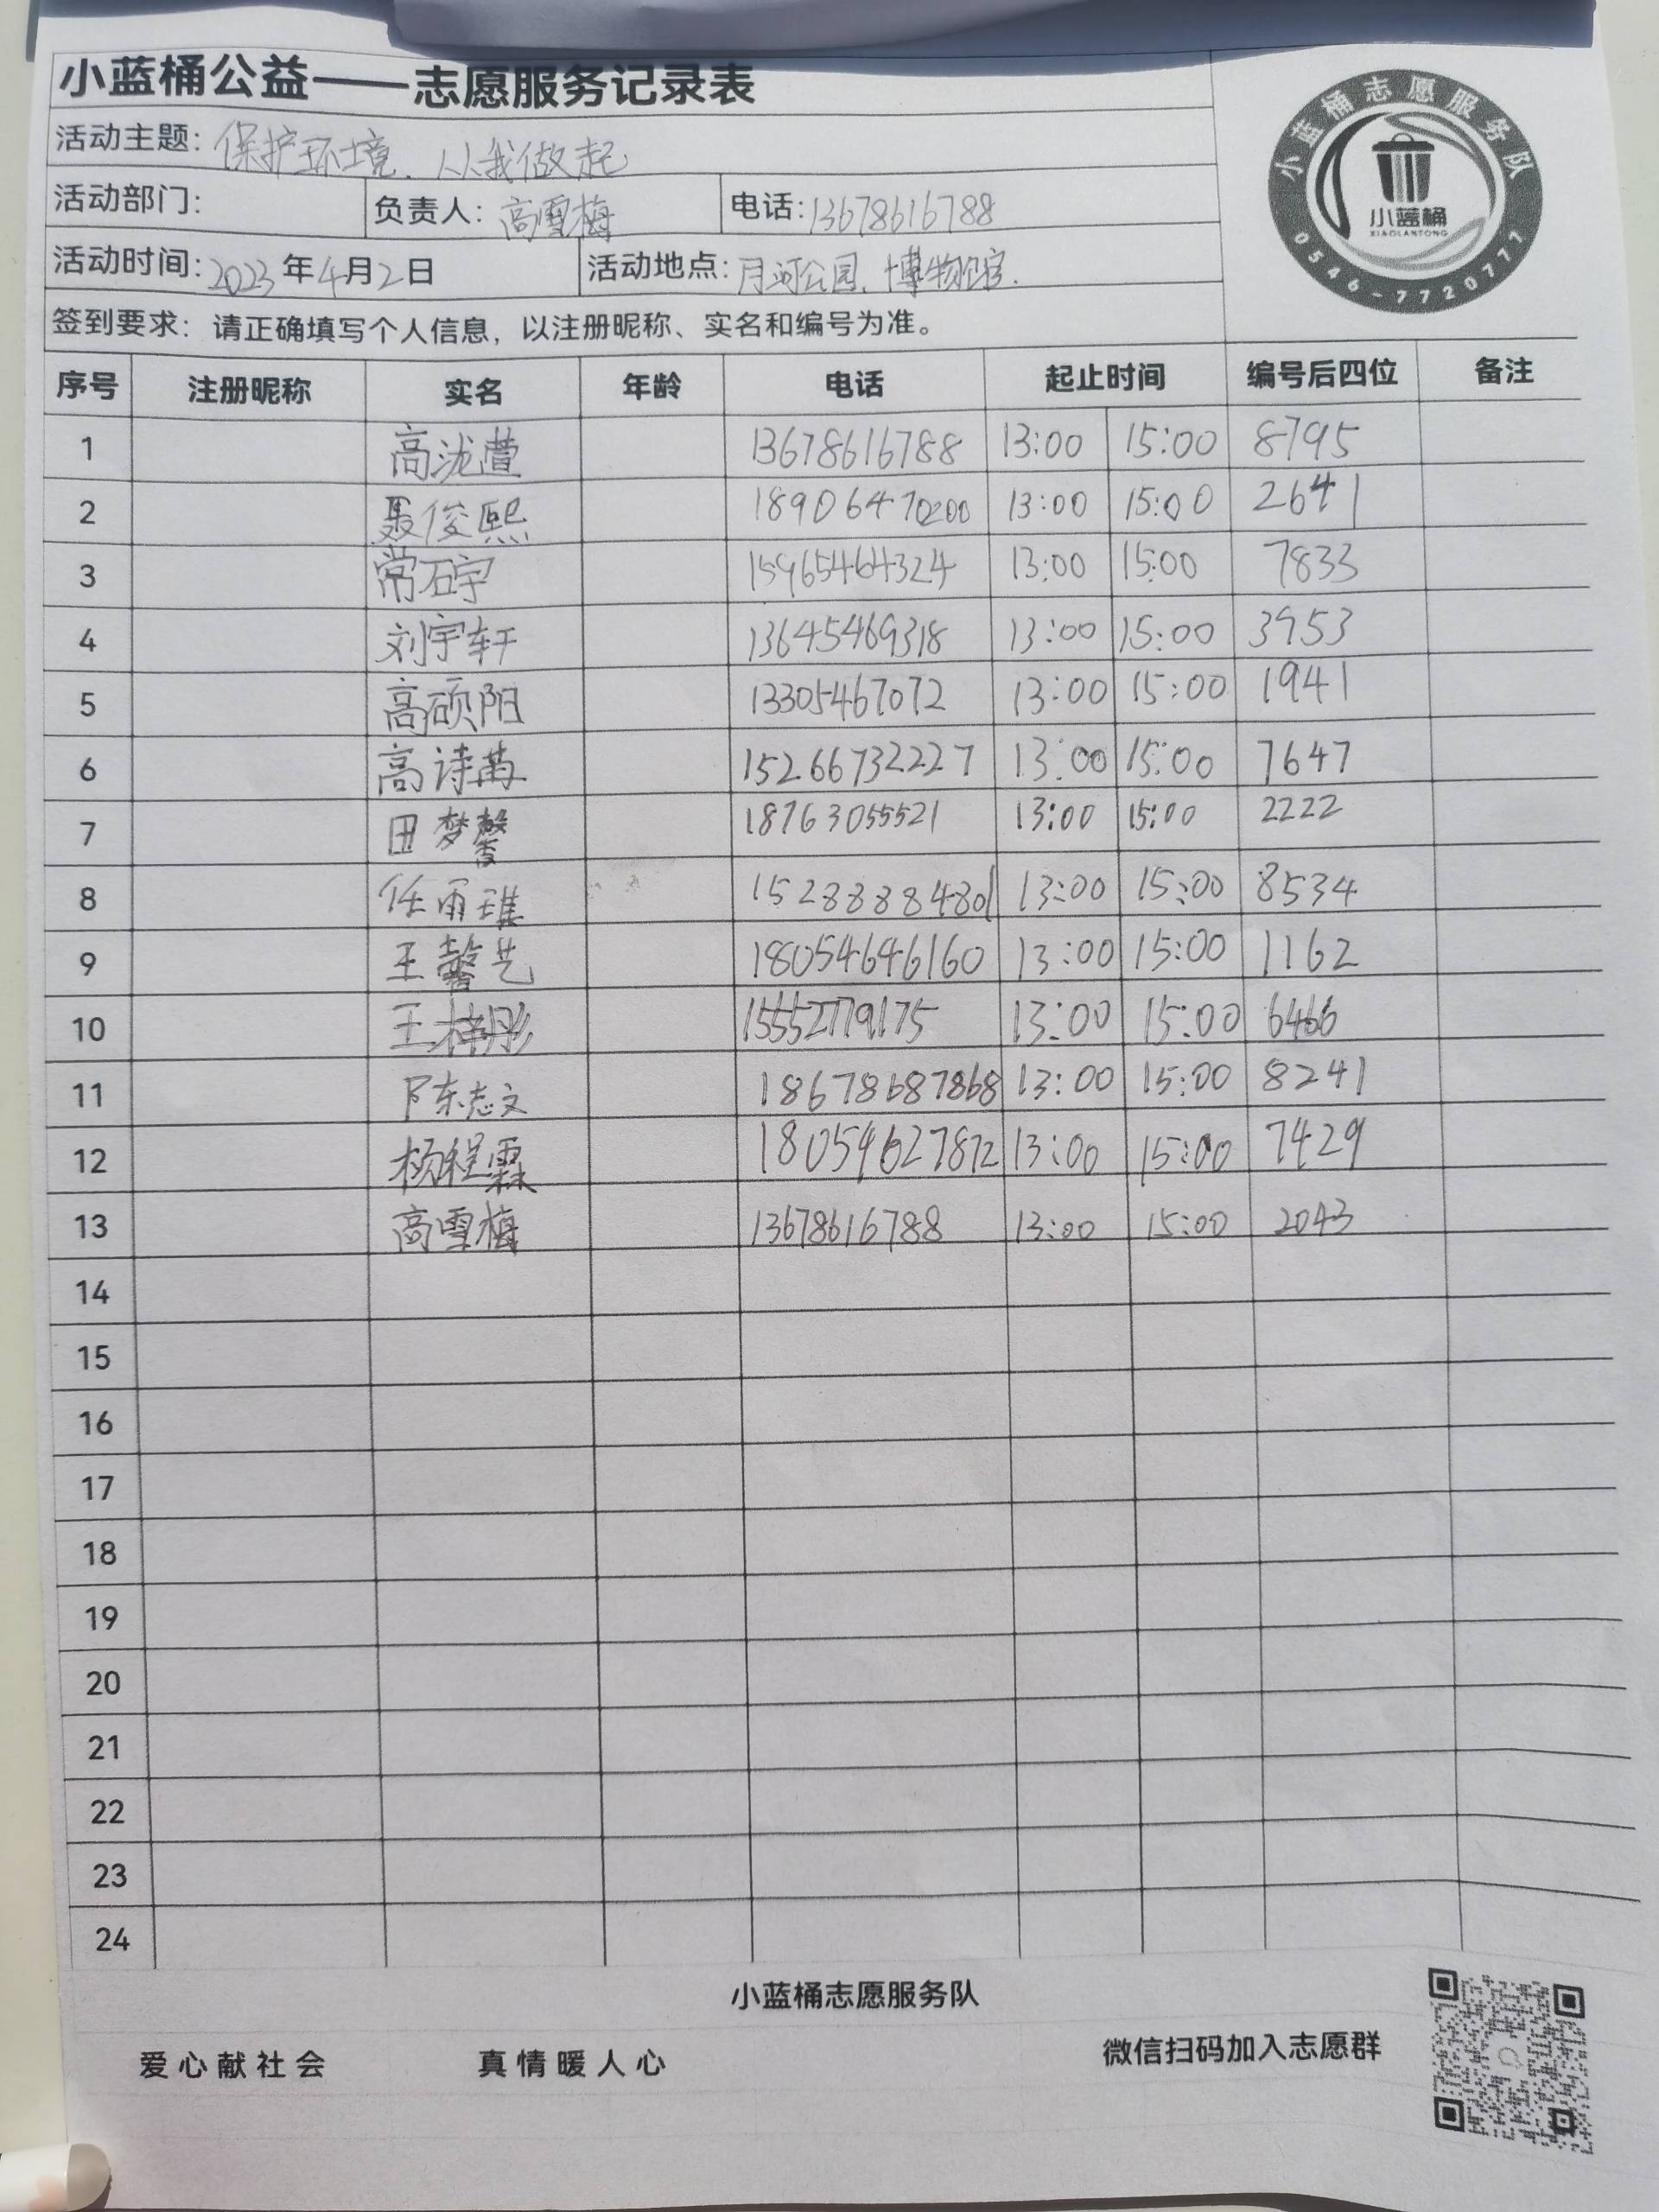 小蓝桶公益——志愿服务记录表
活动主题: 保护环境.从我做起
活动部门: 负责人: 高雪梅 电话: 13678616788
活动时间: 2023年4月2日 活动地点: 月河公园.博物馆.
签到要求: 请正确填写个人信息, 以注册昵称、实名和编号为准。
小蓝桶志愿服务队
小蓝桶
XIAOLANTONG
0546-7720777
序号 注册昵称 实名 年龄 电话 起止时间 编号后四位 备注
1 高泷萱 13678616788 13:00 15:00 8795
2 聂俊熙 18906470200 13:00 15:00 2641
3 常石宇 15965464324 13:00 15:00 7833
4 刘宇轩 13645469318 13:00 15:00 3953
5 高硕阳 13305467072 13:00 15:00 1941
6 高诗苒 15266732227 13:00 15:00 7647
7 田梦馨 18763055521 13:00 15:00 2222
8 任雨 15288884801 13:00 15:00 8534
9 王馨艺 18054646160 13:00 15:00 1162
10 王楠彤 15552779175 13:00 15:00 6466
11 陈志文 18678687868 13:00 15:00 8241
12 杨程霖 18054627872 13:00 15:00 7429
13 高雪梅 13678616788 13:00 15:00 2043
14
15
16
17
18
19
20
21
22
23
24
小蓝桶志愿服务队
爱心献社会 真情暖人心 微信扫码加入志愿群